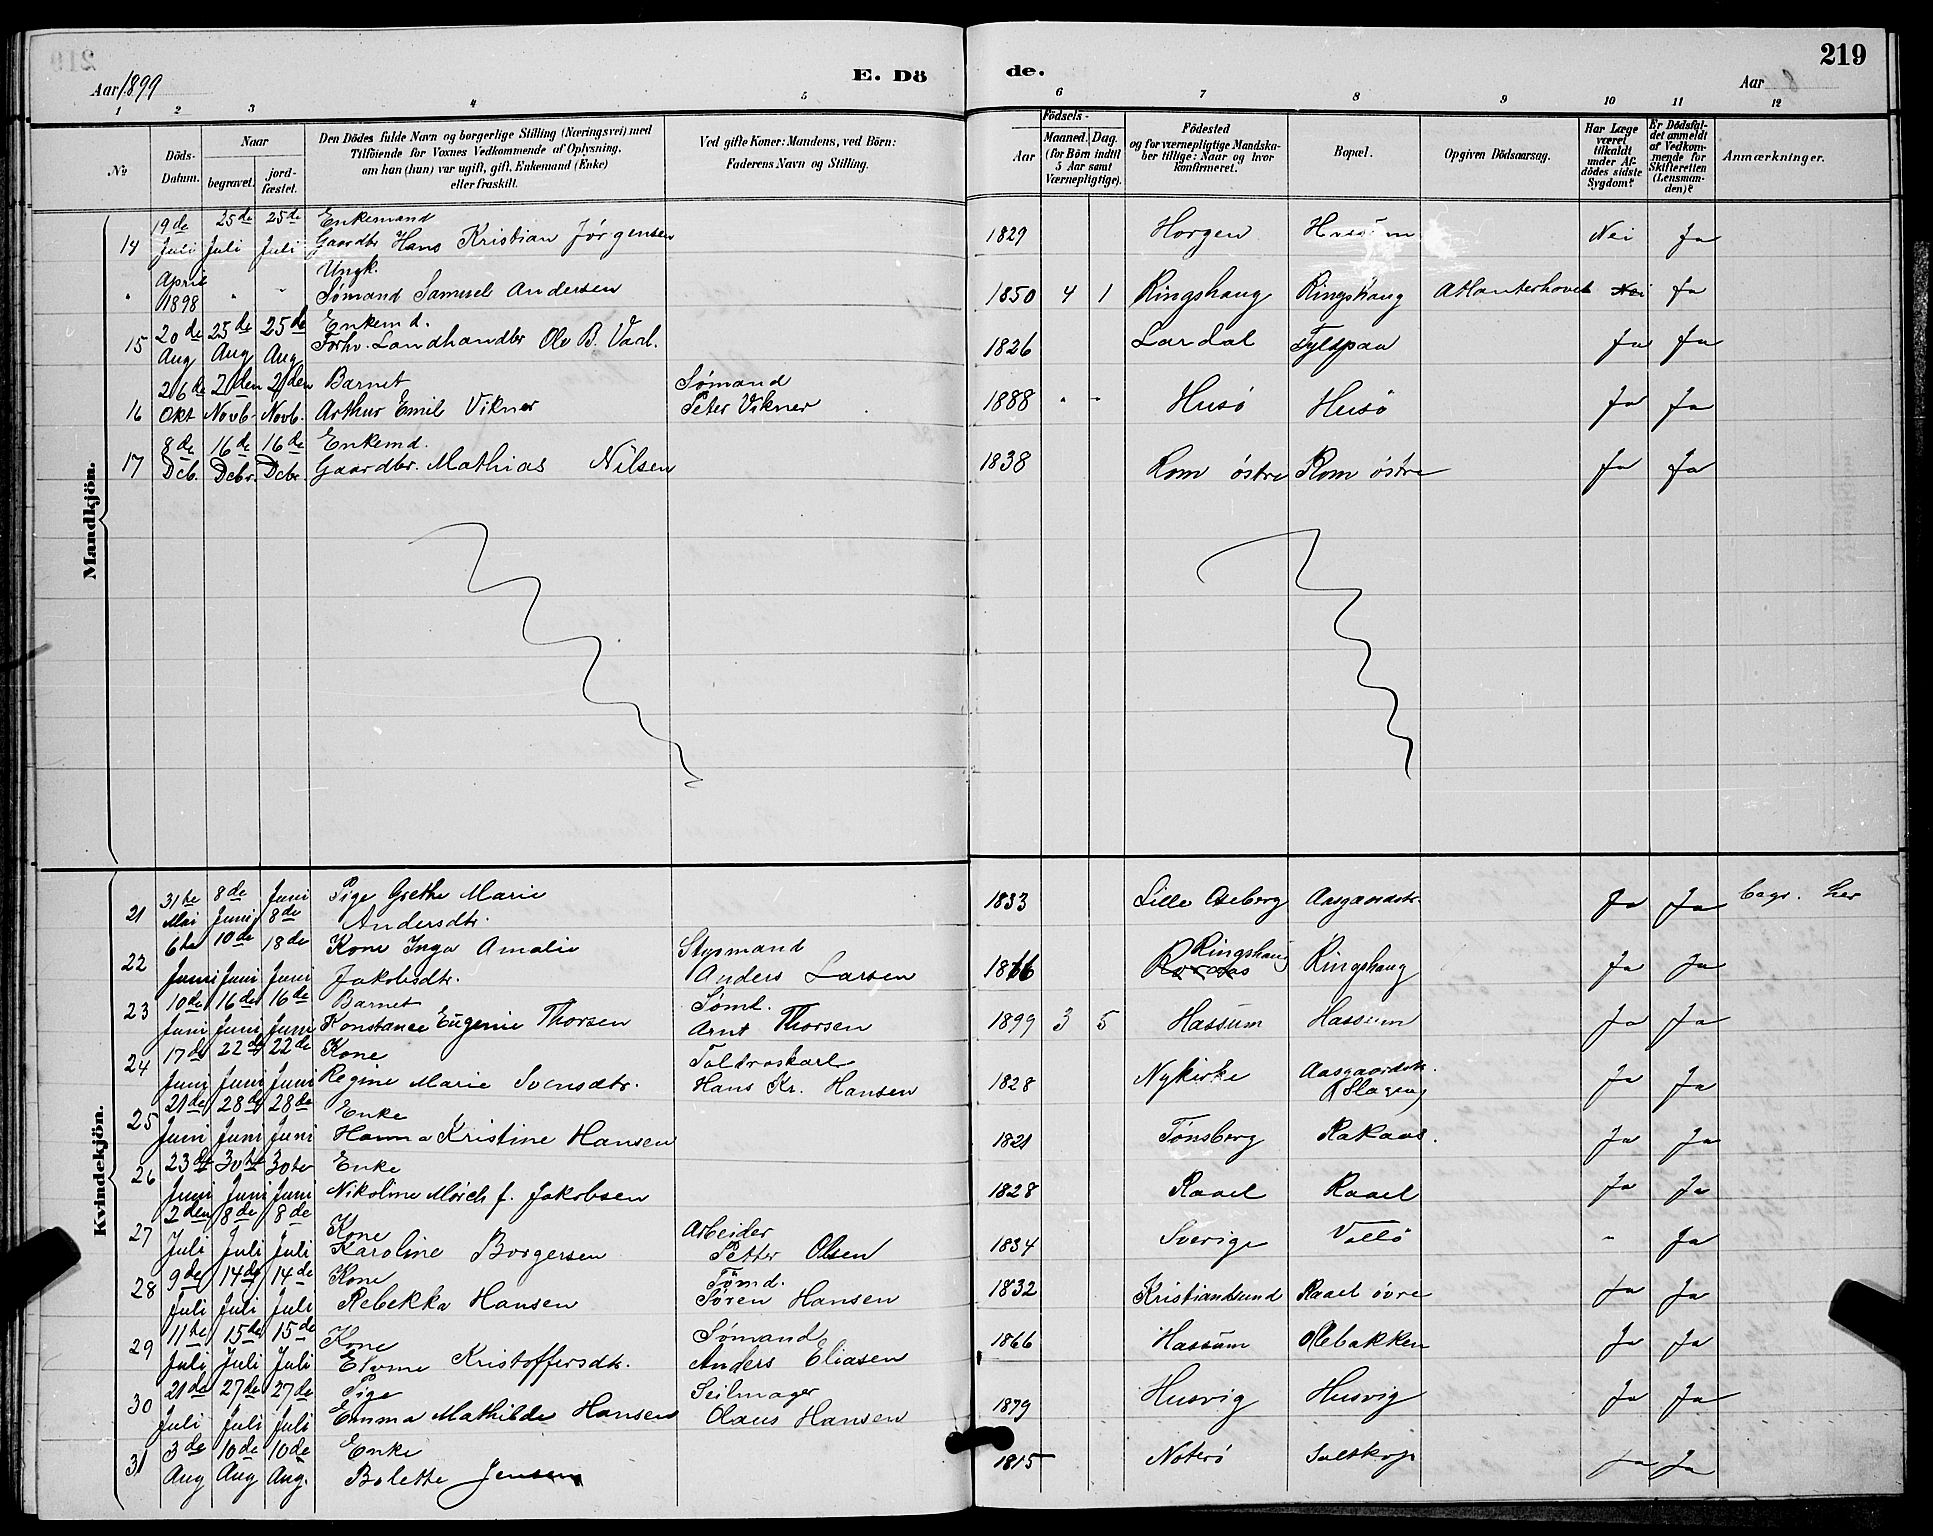 219
Aar 1899
E. Dö
de.
Aar
1 2 3 4 5 6 7 8 9 10 11 12
No
Döds-Datum.
Naar
begravet.
jord-fæstet.
Den Dödes fulde Navn og borgerlige Stilling (Næringsvei) med
Tilföiende for Voxnes Vedkommende af Oplysning,
om han (hun) var ugift, gift, Enkemand (Enke)
eller fraskilt.
Ved gifte Koner: Mandens, ved Börn:
Faderens Navn og Stilling.
Födsels-
Aar
Maaned. Dag.
(for Börn indtil
5 Aar samt
Værnepligtige).
Födested
og for værnepligtige Mandska-
ber tillige: Naar og hvor
konfirmeret.
Bopæl.
Opgiven Dödsaarsag.
Har Læge
været
tilkaldt
under Af-
dödes sidste
Sygdom?
Er Dödsfal-
det anmeldt
af Vedkom-
mende for
Skifteretten
(Lensman-
den)?
Anmærkninger.
Mandkjön.
19de 25de 25de Enkemand
14 Juli Juli Juli Gaardbr Hans Kristian Jørgensen 1829 Horgen Hassum Nei Ja
April Ungk.
" 1898 " " Sømand Samuel Andersen 1850 4 1 Ringshaug Ringshaug Atlanterhavet Nei Ja
20de 25de 25de Enkemd.
15 Aug Aug Aug Forhv. Landhandler Ole B. 1826 Lardal Ja Ja
26de 2den 2den Barnet Sømand
16 Okt Novb. Novb. Arthur Emil Vikner Peter Vikner 1888 " " Husö Husö Ja Ja
8de 16de 16de Enkemd.
17 Dcb. Dcbr. Dcbr. Gaardbr. Mathias Nilsen 1838 Rom östre Rom östre Ja Ja
Kvindekjön.
31te 8de Juni Pige Grethe Marie
21 Mai Juni 8de Andersdtr. 1833 Lille Oseberg Aasgaardstr. Ja Ja begr. her
6te 10de 18de Kone Inga Amalie Styrmand Ringshaug
22 Juni Juni Juni Jakobsdtr. Anders Larsen 1866 Ringshaug Ja Ja
10de 16de 16de Barnet Sømd.
23 Juni Juni Juni Konstance Eugenie Thorsen Arnt Thorsen 1899 3 5 Hassum Hassum Ja Ja
17de 22de 22de Kone Toldroskarl Aasgaardstr.
24 Juni Juni Juni Regine Marie Svensdtr. Hans Kr. Hansen 1828 Nykirke (Slagen) Ja Ja
21de 28de 28de Enke
25 Juni Juni Juni Hanna Kristine Hansen 1821 Tønsberg Rakaas. Ja Ja
23de 30te 30te Enke
26 Juni Juni Juni Nikoline Mörch f. Jakobsen 1828 Raael Raael Ja Ja
2den 8de 8de Kone Arbeider
27 Juli Juli Juli Karoline Borgersen Petter Olsen 1834 Sverige Vallö " Ja
9de 14de 14de Kone Tömd.
28 Juli Juli Juli Rebekka Hansen Sören Hansen 1832 Kristiansund Raael övre Ja Ja
11te 15de 15de Kone Sømand
29 Juli Juli Juli Kristoffersdtr. Anders Eliasen 1866 Hassum Ja Ja
21de 27de 27de Pige Seilmager
30 Juli Juli Juli Emma Mathilde Hansen Olaus Hansen 1879 Husvig Husvig Ja Ja
3de 10de 10de Enke
31 Aug Aug Aug. Bolette Jensen 1815 Noterö Saltkop Ja Ja